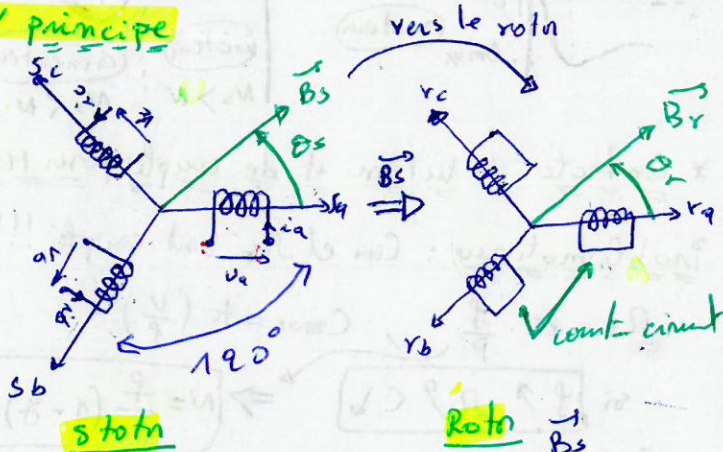 principe
vers le rotor
Sc
Bs
θs
Sa
ia
va
Sb
120°
stator
Bs
rc
Br
θr
ra
rb
court-circuit
Rotor
Bs